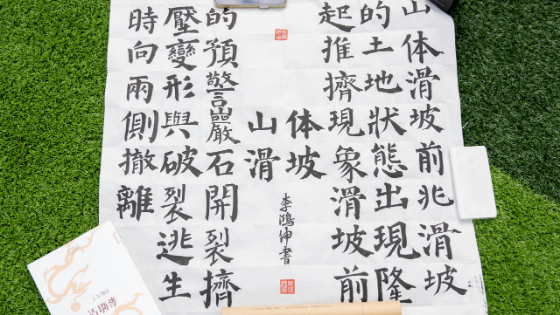 山体滑坡前兆滑坡
的土地狀態出現隆
起推擠現象滑坡前
山体
滑坡
李鴻伸書
的預警巖石開裂擠
壓變形與破裂逃生
時向雨側撤離